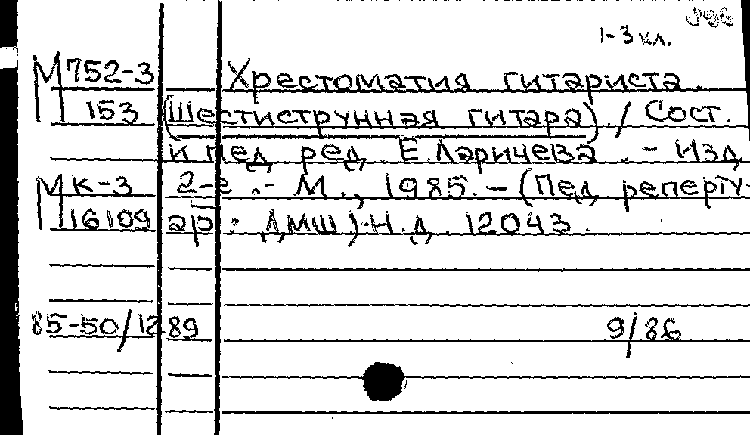 1-3 кл.
М752-3 Хрестоматия гитариста.
153 (Шестиструнная гитара) / Сост.
и пед ред Е.Ларичева. - Изд
М К-3 2-е. - М., 1985. - (Пед реперту-
16109 ар: ДМШ). Н.д. 12043.
85-50/1289 9/86